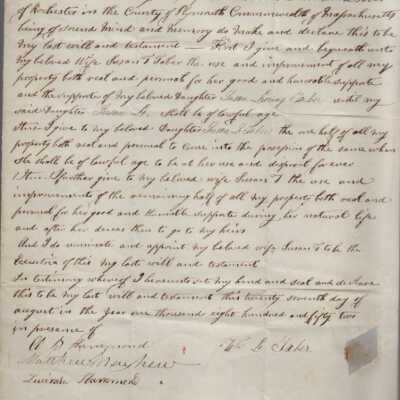 of Rochester in the County of Plymouth Commonwealth of Massachusetts
being of sound mind and memory do make and declare this to be
my last will and testament — First I give and bequeath unto
my beloved Wife Susan T Taber the use and improvement of all my
property both real and personal for her good and
and the support of my beloved Daughter Susan Taber until my
said Daughter Susan shall be of lawful age
Item I give to my beloved Daughter Susan Taber the one half of all my
property both real and personal to come into the possession of the same when
she shall be of lawful age to be at her use and disposal forever
Item I further give to my beloved wife Susan T the use and
improvements of the remaining half of all my property both real and
personal for her good and support during her natural life
and after her deces then to go to my heirs
And I do nominate and appoint my beloved wife Susan T to be the
Executrix of this my last will and testament
In testimony whereof I hereunto set my hand and seal and declare
this to be my last will and testament this twenty seventh day of
august in the year one thousand eight hundred and fifty two
in presence of
Wm Taber
A B Hammond
Matthew Mayhew
Hammond